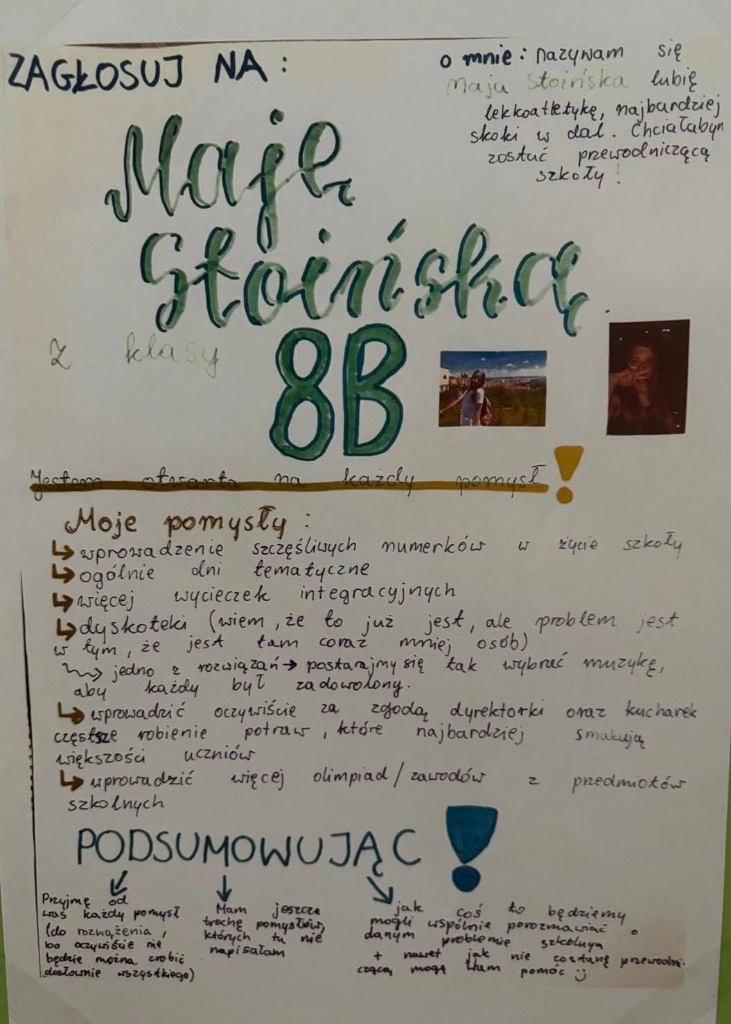 ZAGŁOSUJ NA:
o mnie: nazywam się
Maja Stoińska lubię
lekkoatletykę, najbardziej
skoki w dal. Chciałabym
zostać przewodniczącą
szkoły!
Maję
Stoińską
z klasy
8B
Jestem otwarta na każdy pomysł!
Moje pomysły:
↳wprowadzenie szczęśliwych numerków w życie szkoły
↳ogólnie dni tematyczne
↳więcej wycieczek integracyjnych
↳dyskoteki (wiem, że to już jest, ale problem jest
w tym, że jest tam coraz mniej osób)
jedno z rozwiązań → postarajmy się tak wybrać muzykę,
aby każdy był zadowolony.
↳wprowadzić oczywiście za zgodą dyrektorki oraz kucharek
częstsze robienie potraw, które najbardziej smakują
większości uczniów
↳wprowadzić więcej olimpiad/zawodów z przedmiotów
szkolnych
PODSUMOWUJĄC!
Przyjmę od
was każdy pomysł
(do rozważenia,
bo oczywiście nie
będzie można zrobić
dosłownie wszystkiego)
Mam jeszcze
trochę pomysłów,
których tu nie
napisałam
jak coś to będziemy
mogli wspólnie porozmawiać o
danym problemie szkolnym
+ nawet jak nie zostanę przewodni-
czącą mogę wam pomóc :)